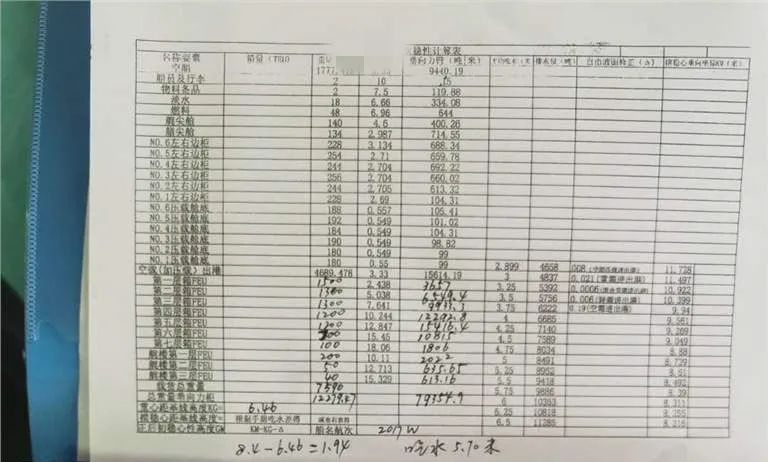 稳性计算表
名称要素 箱量(TEU) 重 垂向力臂(吨*米) 平均吃水(米 排水量(吨) 自由液面修正(△) 横稳心垂向坐标KM(米)
空船 1777. 9440.19
船员及行李 2 10
物料备品 2 7.5 119.88
淡水 18 6.66 334.08
燃料 48 6.96 644
艉尖舱 140 4.6 400.26
艏尖舱 134 2.987 714.55
NO.6左右边柜 228 3.134 688.34
NO.5左右边柜 254 2.71 659.78
NO.4左右边柜 244 2.704 692.22
NO.3左右边柜 256 2.704 660.02
NO.2左右边柜 244 2.705 613.32
NO.1左右边柜 228 2.69 104.31
NO.6压载舱底 188 0.557 105.41
NO.5压载舱底 192 0.549 101.02
NO.4压载舱底 184 0.549 104.31
NO.3压载舱底 190 0.549 98.82
NO.2压载舱底 180 0.549 99
NO.1压载舱底 180 0.55 99 2.899 4658 11.728
空载(加压载)出港 4689.478 3.33 15614.19 3 4837 11.497
第一层箱FEU 1500 2.438 3657 3.25 5392 10.922
第二层箱FEU 1300 5.038 6549.4 3.5 5756 10.399
第三层箱FEU 1300 7.641 9933.3 3.75 6222 9.94
第四层箱FEU 1200 10.244 12292.8 4 6685 9.561
第五层箱FEU 1200 12.847 15416.4 4.25 7140 9.269
第六层箱FEU 15.45 10815 4.5 7589 9.049
第七层箱FEU 100 18.06 1806 4.75 8034 8.88
艉楼第一层FEU 200 10.11 2022 5 8491 8.729
艉楼第二层FEU 50 12.713 635.65 5.25 8952 8.61
艉楼第三层FEU 40 15.329 613.16 5.5 9418 8.492
载货总重量 7590 5.75 9886 8.39
总重量垂向力矩 12279.47 79354.9 6 10353 8.311
重心距基线高度KG= 6.46 6.25 10819 8.255
横稳心距基线高度= 根据平均吃水查得 6.5 11285 8.216
正日初稳心性高度GM KM-KG-△ 船名航次 2017W
8.4-6.46=1.94 吃水5.70米